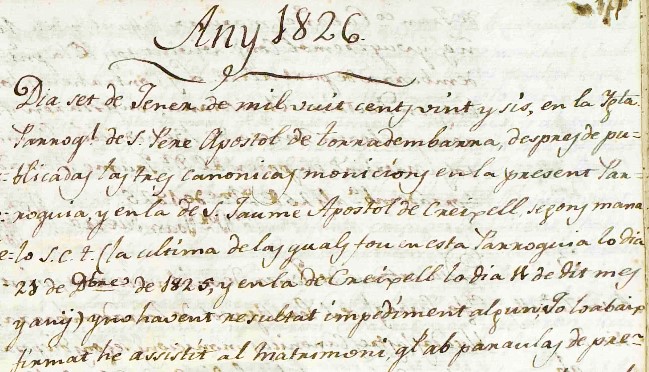 Any 1826.
Dia set de Jener de mil vuit cents vint y sis, en la Ygla.
Parroql. de S. Pere Apostol de torradembarra, despres de pu=
=blicadas las tres canonicas monicions en la present Par=
roquia, y en la de S. Jaume Apostol de Creixell, segons mana
lo S. C. t. (la ultima de las quals fou en esta Parroquia lo dia
de Dbre. de 1825, y en la de Creixell lo dia de dit mes
y any) y no havent resultat impediment algun, Jo lo abaix
firmat he assistit al Matrimoni, ql. ab paraulas de pre=